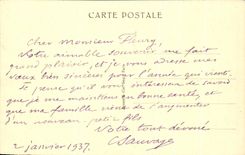 CARTE POSTALE
Cher Monsieur Fleury
Votre aimable souvenir me fait
grand plaisir, et je vous adresse mes
vœux bien sincères pour l'année qui vient.
Je pense qu'il vous intéressera de savoir
que je me maintiens en bonne santé, et
que ma famille vient de s'augmenter
d'un nouveau petit fils
Votre tout dévoué
CSauvage
2 janvier 1937.